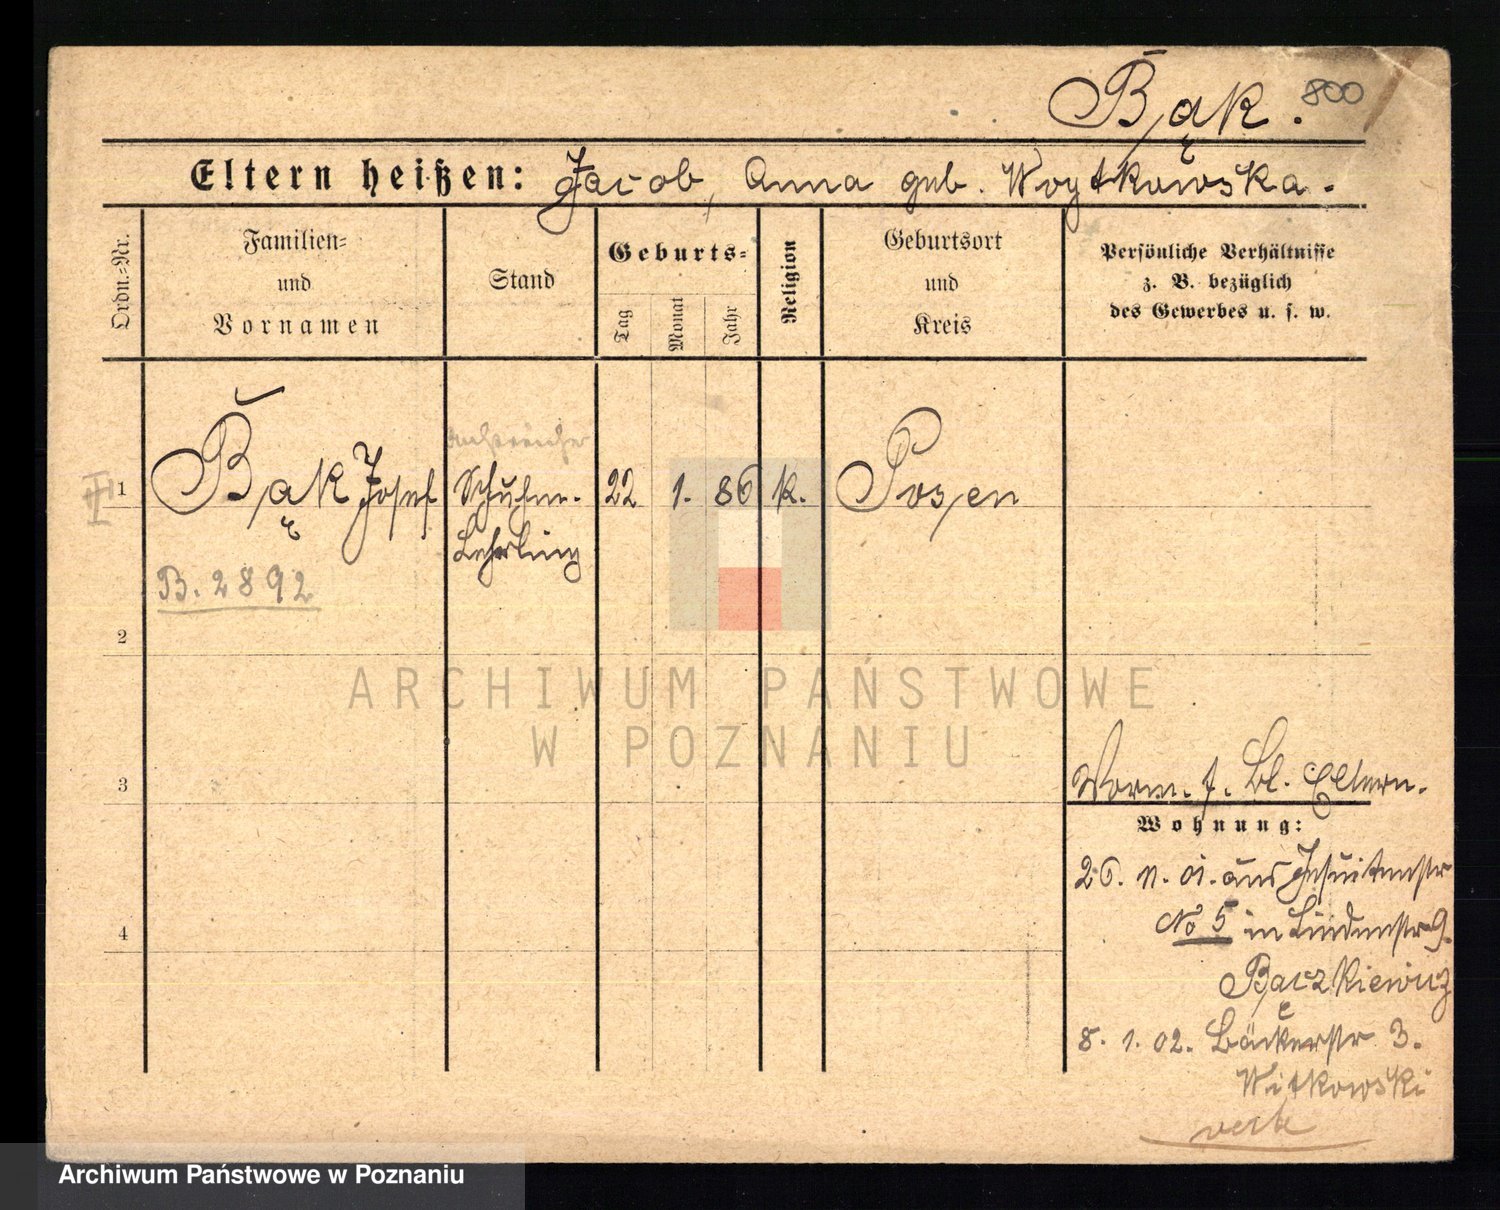 Bąk. 800
Eltern heißen: Jacob, Anna geb. Woytkowska.
Ordn.-Nr.
Familien-
und
Vornamen
Stand
Geburts-
Tag
Monat
Jahr
Religion
Geburtsort
und
Kreis
Persönliche Verhältnisse
z. B. bezüglich
des Gewerbes u. s. w.
II
1 Bąk Josef Schuhm. 22 1. 86 k. Posen
Lehrling
B. 2892
2
ARCHIWUM PAŃSTWOWE
W POZNANIU
3
Vorm. f. Bl. Eltern.
Wohnung:
26. 11. 01. aus Jesuitenstr
No 5 in Lindenstr 9.
4
Bączkiewicz
8. 1. 02. Bäckerstr 3.
Witkowski
Archiwum Państwowe w Poznaniu